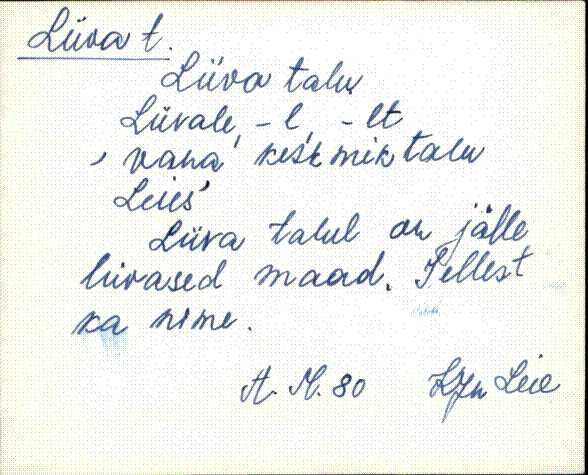 Liiva t.
Liiva talu
Liivale, -l, -lt
, vana keskmik talu
Leies'
Liiva talul on jälle
liivased maad. Sellest
ka nimi.
A. M. 80 KJn Leie